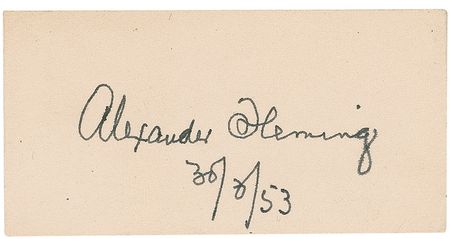 Alexander Fleming
30/3/53